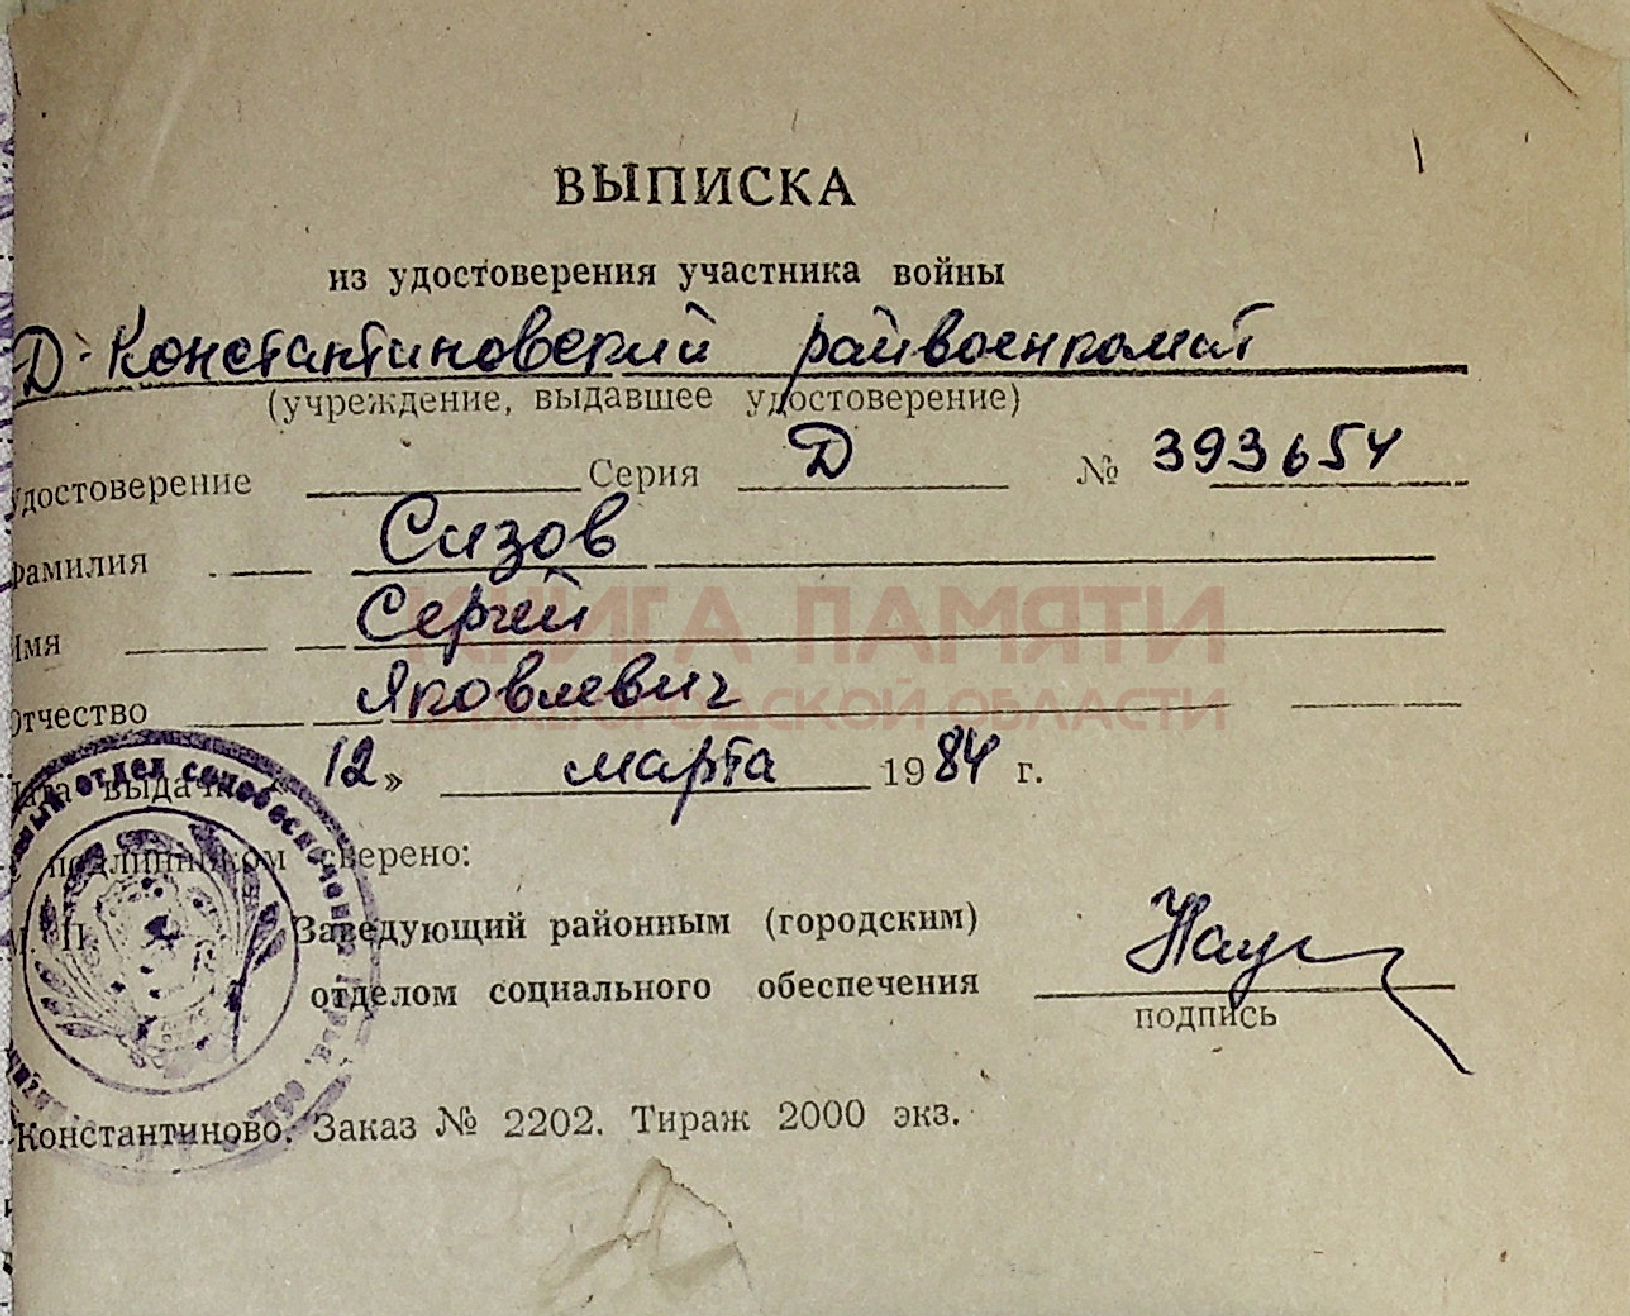 ВЫПИСКА
из удостоверения участника войны
Д-Константиновский райвоенкомат
(учреждение, выдавшее удостоверение)
Удостоверение Серия Д № 393654
Фамилия Сизов
Имя Сергей
КНИГА ПАМЯТИ
Отчество Яковлевич
НИЖЕГОРОДСКОЙ ОБЛАСТИ
Дата выдачи « 12 » марта 1984 г.
С подлинником сверено:
М. П. Заведующий районным (городским)
отделом социального обеспечения
подпись
Константиново. Заказ № 2202. Тираж 2000 экз.
отдел соцобеспечения